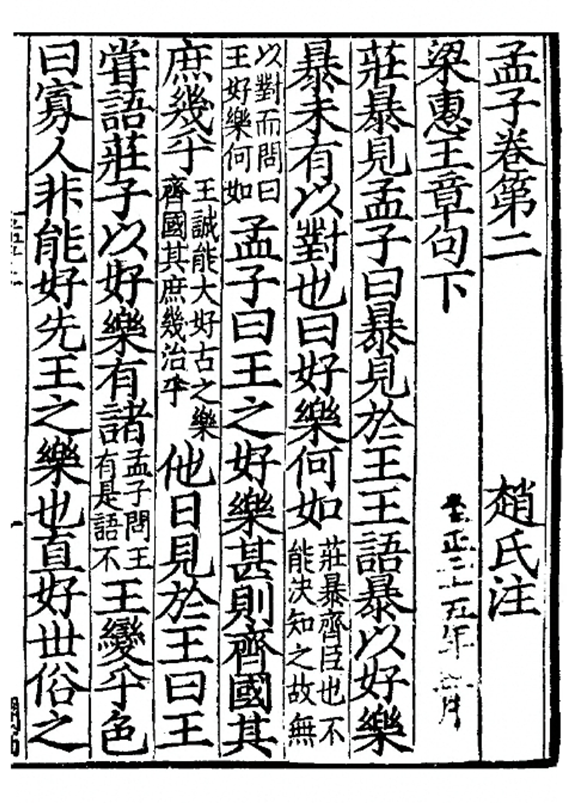 孟子卷第二 趙氏注
梁惠王章句下
莊暴見孟子曰暴見於王王語暴以好樂
暴未有以對也曰好樂何如莊暴齊臣也不能決知之故無
以對而問曰王好樂何如孟子曰王之好樂甚則齊國其
庶幾乎王誠能大好古之樂齊國其庶幾治乎他日見於王曰王
嘗語莊子以好樂有諸孟子問王有是語不王變乎色
曰寡人非能好先王之樂也直好世俗之